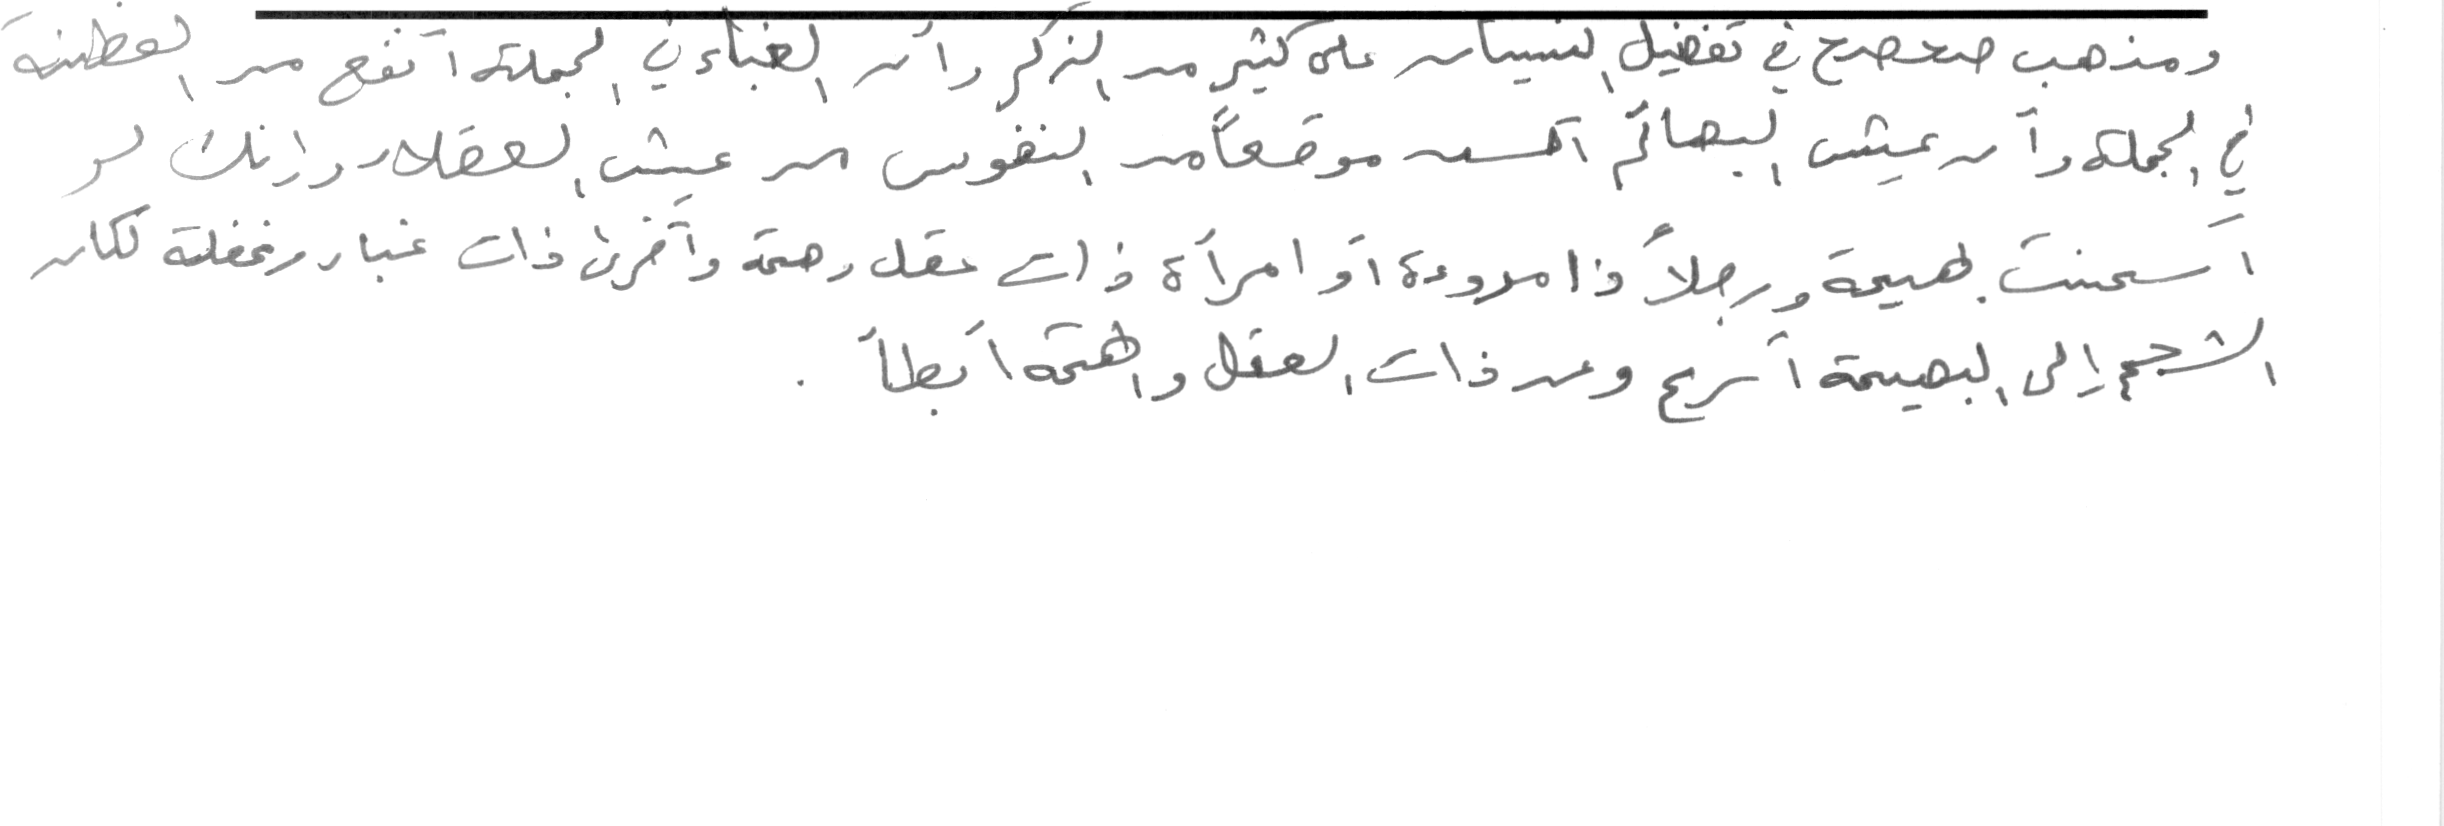 ومذهب صحصح في تفضيل النسيان على كثير من الذكر وأن الغباء في الجملة أنفع من الفطنة
في الجملة وأن عيش البهائم أحسن موقعاً من النفوس من عيش العقلاء وإنك لو
أسمنت بهيمة ورجلاً ذا مروءة أو امرأة ذات عقل وهمة وأخرى ذات غباء وغفلة لكان
الشحم إلى البهيمة أسرع وعن ذات العقل والهمة أبطأ .